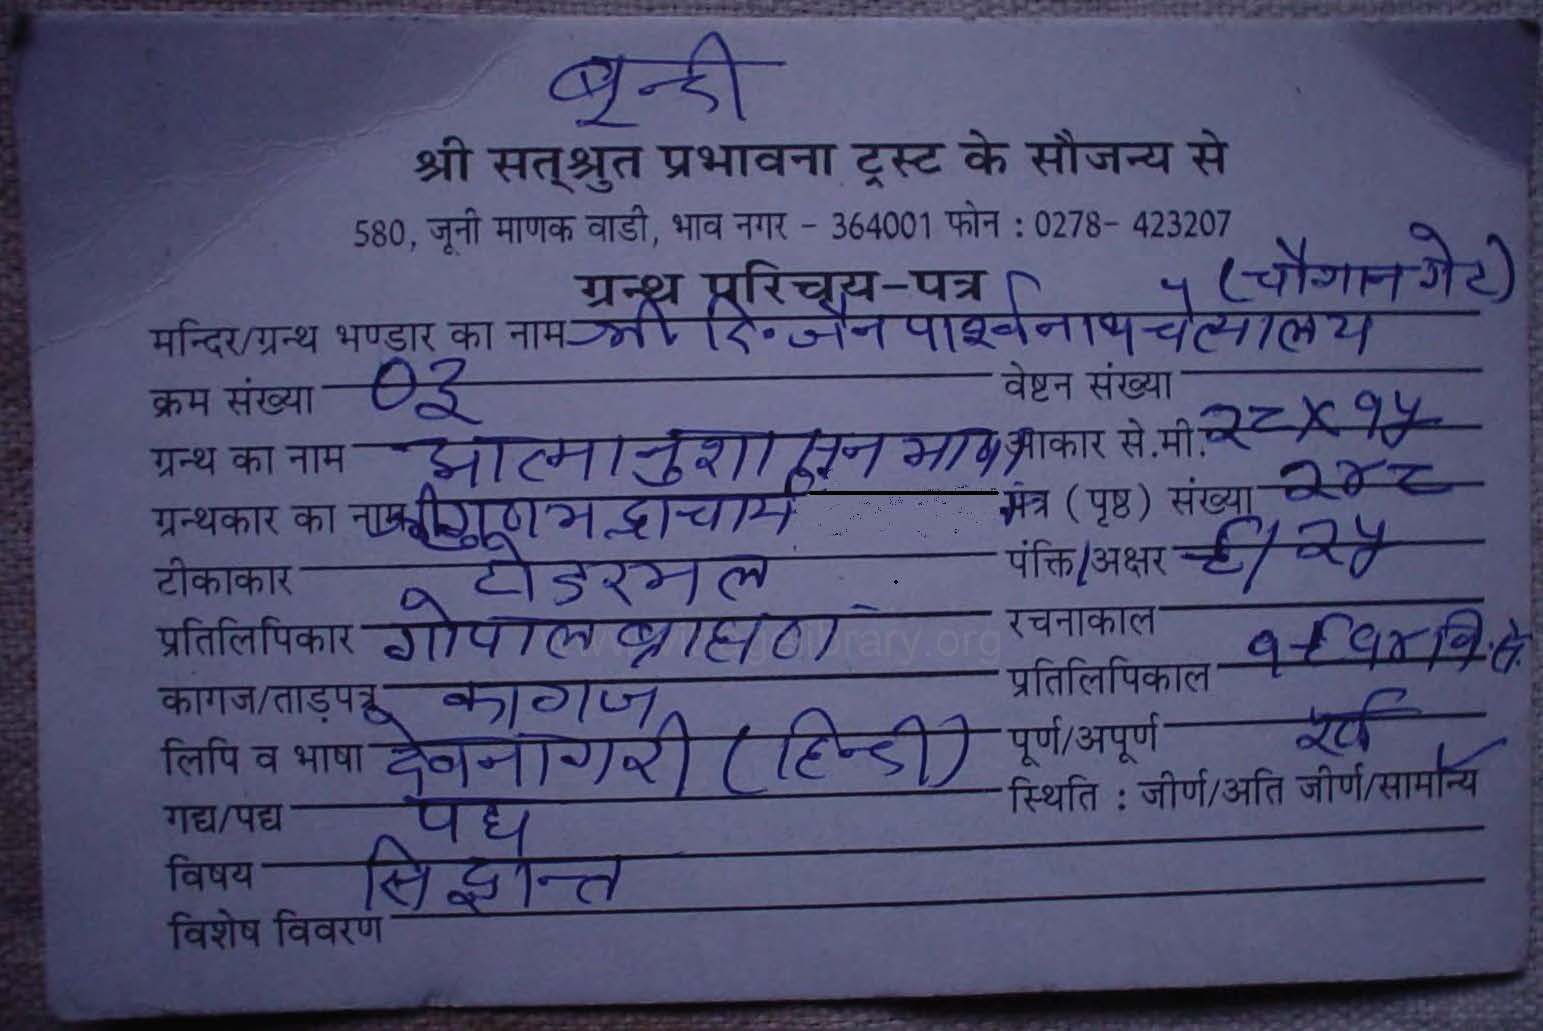 बून्दी
श्री सत्श्रुत प्रभावना ट्रस्ट के सौजन्य से
580, जूनी माणक वाडी, भाव नगर - 364001 फोन : 0278- 423207
ग्रन्थ परिचय-पत्र (चौगान गेट)
मन्दिर/ग्रन्थ भण्डार का नाम श्री दि. जैन पार्श्वनाथ चैत्यालय
क्रम संख्या 03 वेष्टन संख्या
ग्रन्थ का नाम आत्मानुशासन भाषा आकार से.मी. २८ x १५
ग्रन्थकार का नाम श्री गुणभद्राचार्य पत्र (पृष्ठ) संख्या २४८
टीकाकार टोडरमल पंक्ति/अक्षर ९/२५
प्रतिलिपिकार गोपाल ब्राह्मण रचनाकाल
कागज/ताड़पत्र कागज प्रतिलिपिकाल १९१४ वि.सं.
लिपि व भाषा देवनागरी (हिन्दी) पूर्ण/अपूर्ण पूर्ण
गद्य/पद्य पद्य स्थिति : जीर्ण/अति जीर्ण/सामान्य
विषय सिद्धान्त
विशेष विवरण